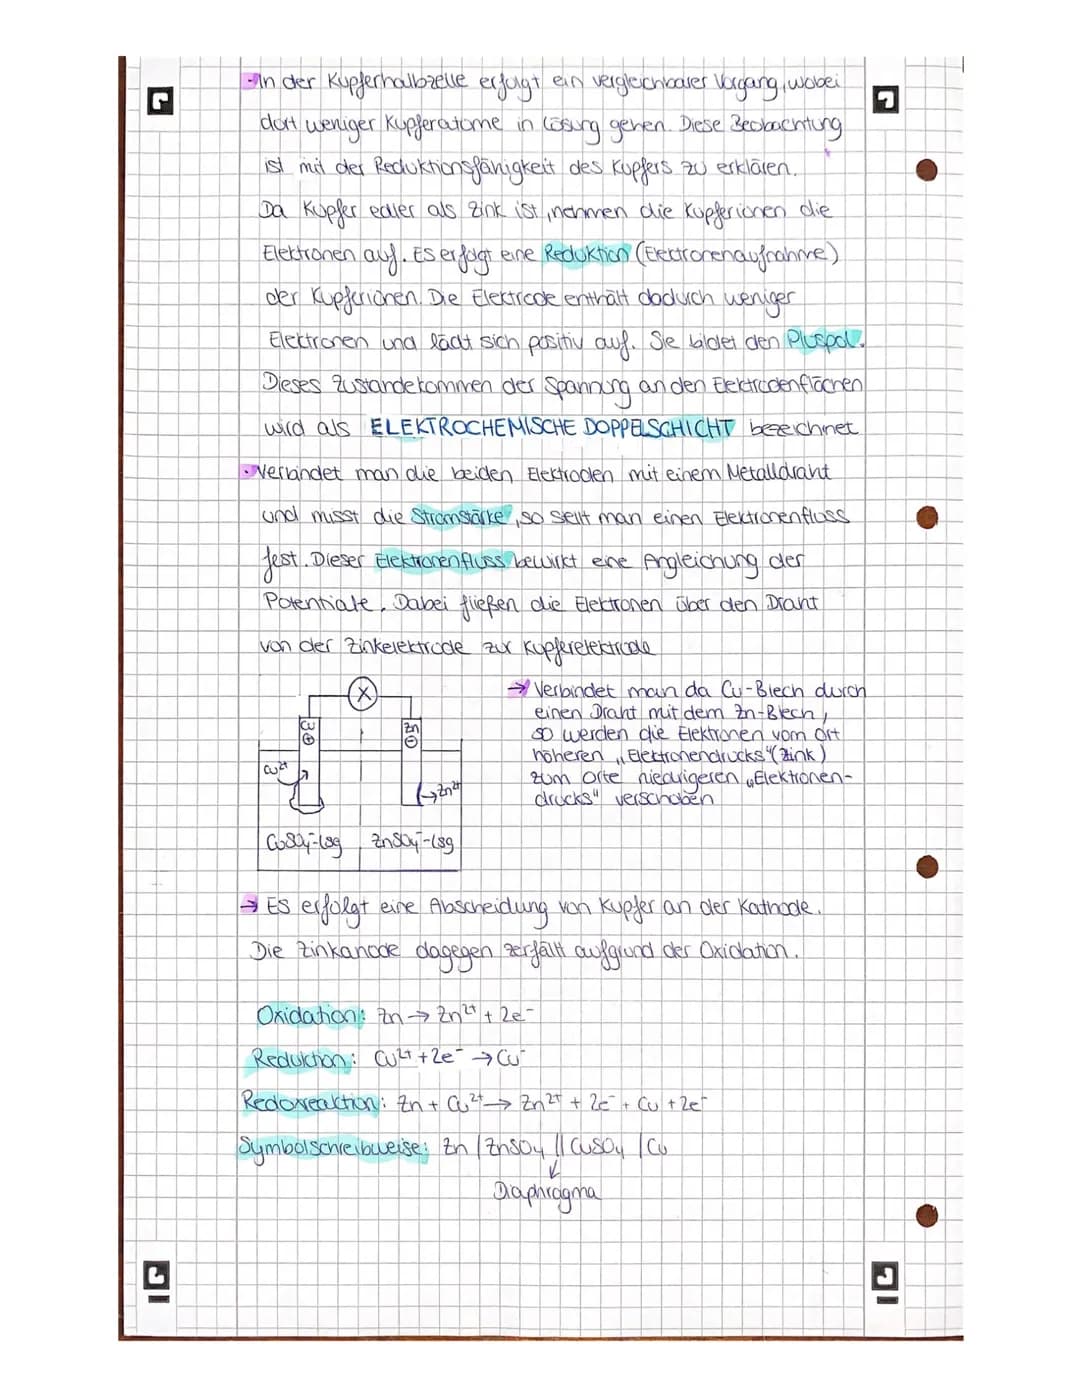 -In der Kupferhalbzelle erfolgt ein vergleichbarer Vorgang, wobei
dort weniger Kupferatome in Lösung gehen. Diese Beobachtung
ist mit der Reduktionsfähigkeit des Kupfers zu erklären.
Da Kupfer edler als Zink ist, nehmen die Kupferionen die
Elektronen auf. Es erfolgt eine Reduktion (Elektronenaufnahme)
der Kupferionen. Die Elektrode enthält dadurch weniger
Elektronen und lädt sich positiv auf. Sie bildet den Pluspol.
Dieses Zustandekommen der Spannung an den Elektrodenflächen
wird als ELEKTROCHEMISCHE DOPPELSCHICHT bezeichnet
• Verbindet man die beiden Elektroden mit einem Metalldraht
und misst die Stromstärke, so sellt man einen Elektronenfluss
fest. Dieser Elektronenfluss bewirkt eine Angleichung der
Potentiale. Dabei fließen die Elektronen über den Draht
von der Zinkelektrode zur Kupferelektrode
→ Verbindet man da Cu-Blech durch
einen Draht mit dem Zn-Blech,
so werden die Elektronen vom Ort
höheren „Elektronendrucks" (Zink)
zum Orte niedrigeren „Elektronen-
drucks" verschoben
X
Cu ⊕
Zn ⊖
Cu²⁺
→Zn²⁺
CuSO₄-Lsg
ZnSO₄-Lsg
→ Es erfolgt eine Abscheidung von Kupfer an der Kathode.
Die Zinkanode dagegen zerfällt aufgrund der Oxidation.
Oxidation: Zn → Zn²⁺ + 2e⁻
Reduktion: Cu²⁺ + 2e⁻ → Cu⁻
Redoxreaktion: Zn + Cu²⁺ → Zn²⁺ + 2e⁻ + Cu + 2e⁻
Symbolschreibweise: Zn | ZnSO₄ || CuSO₄ | Cu
Diaphragma